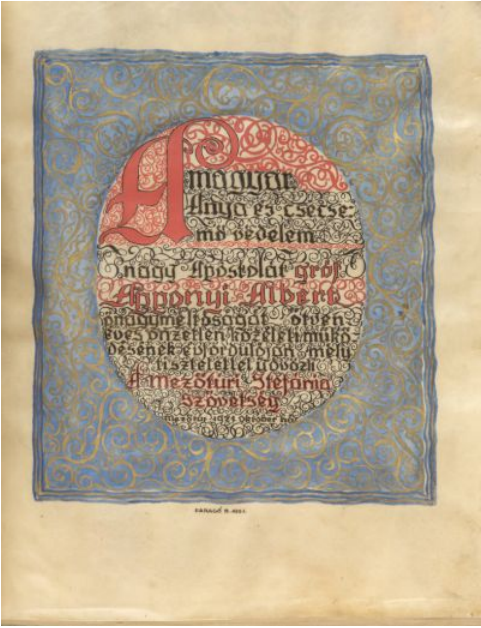 A magyar
Anya és csecse-
mő védelem
nagy Apostolát gróf
Apponyi Albert
őnagyméltóságát ötven
éves önzetlen közéleti műkö
désének évfordulóján mély
tisztelettel üdvözli
A Mezőtúri Stefánia
Szövetség
Mezőtúr 1921 Október hó
FARAGÓ B. 1921